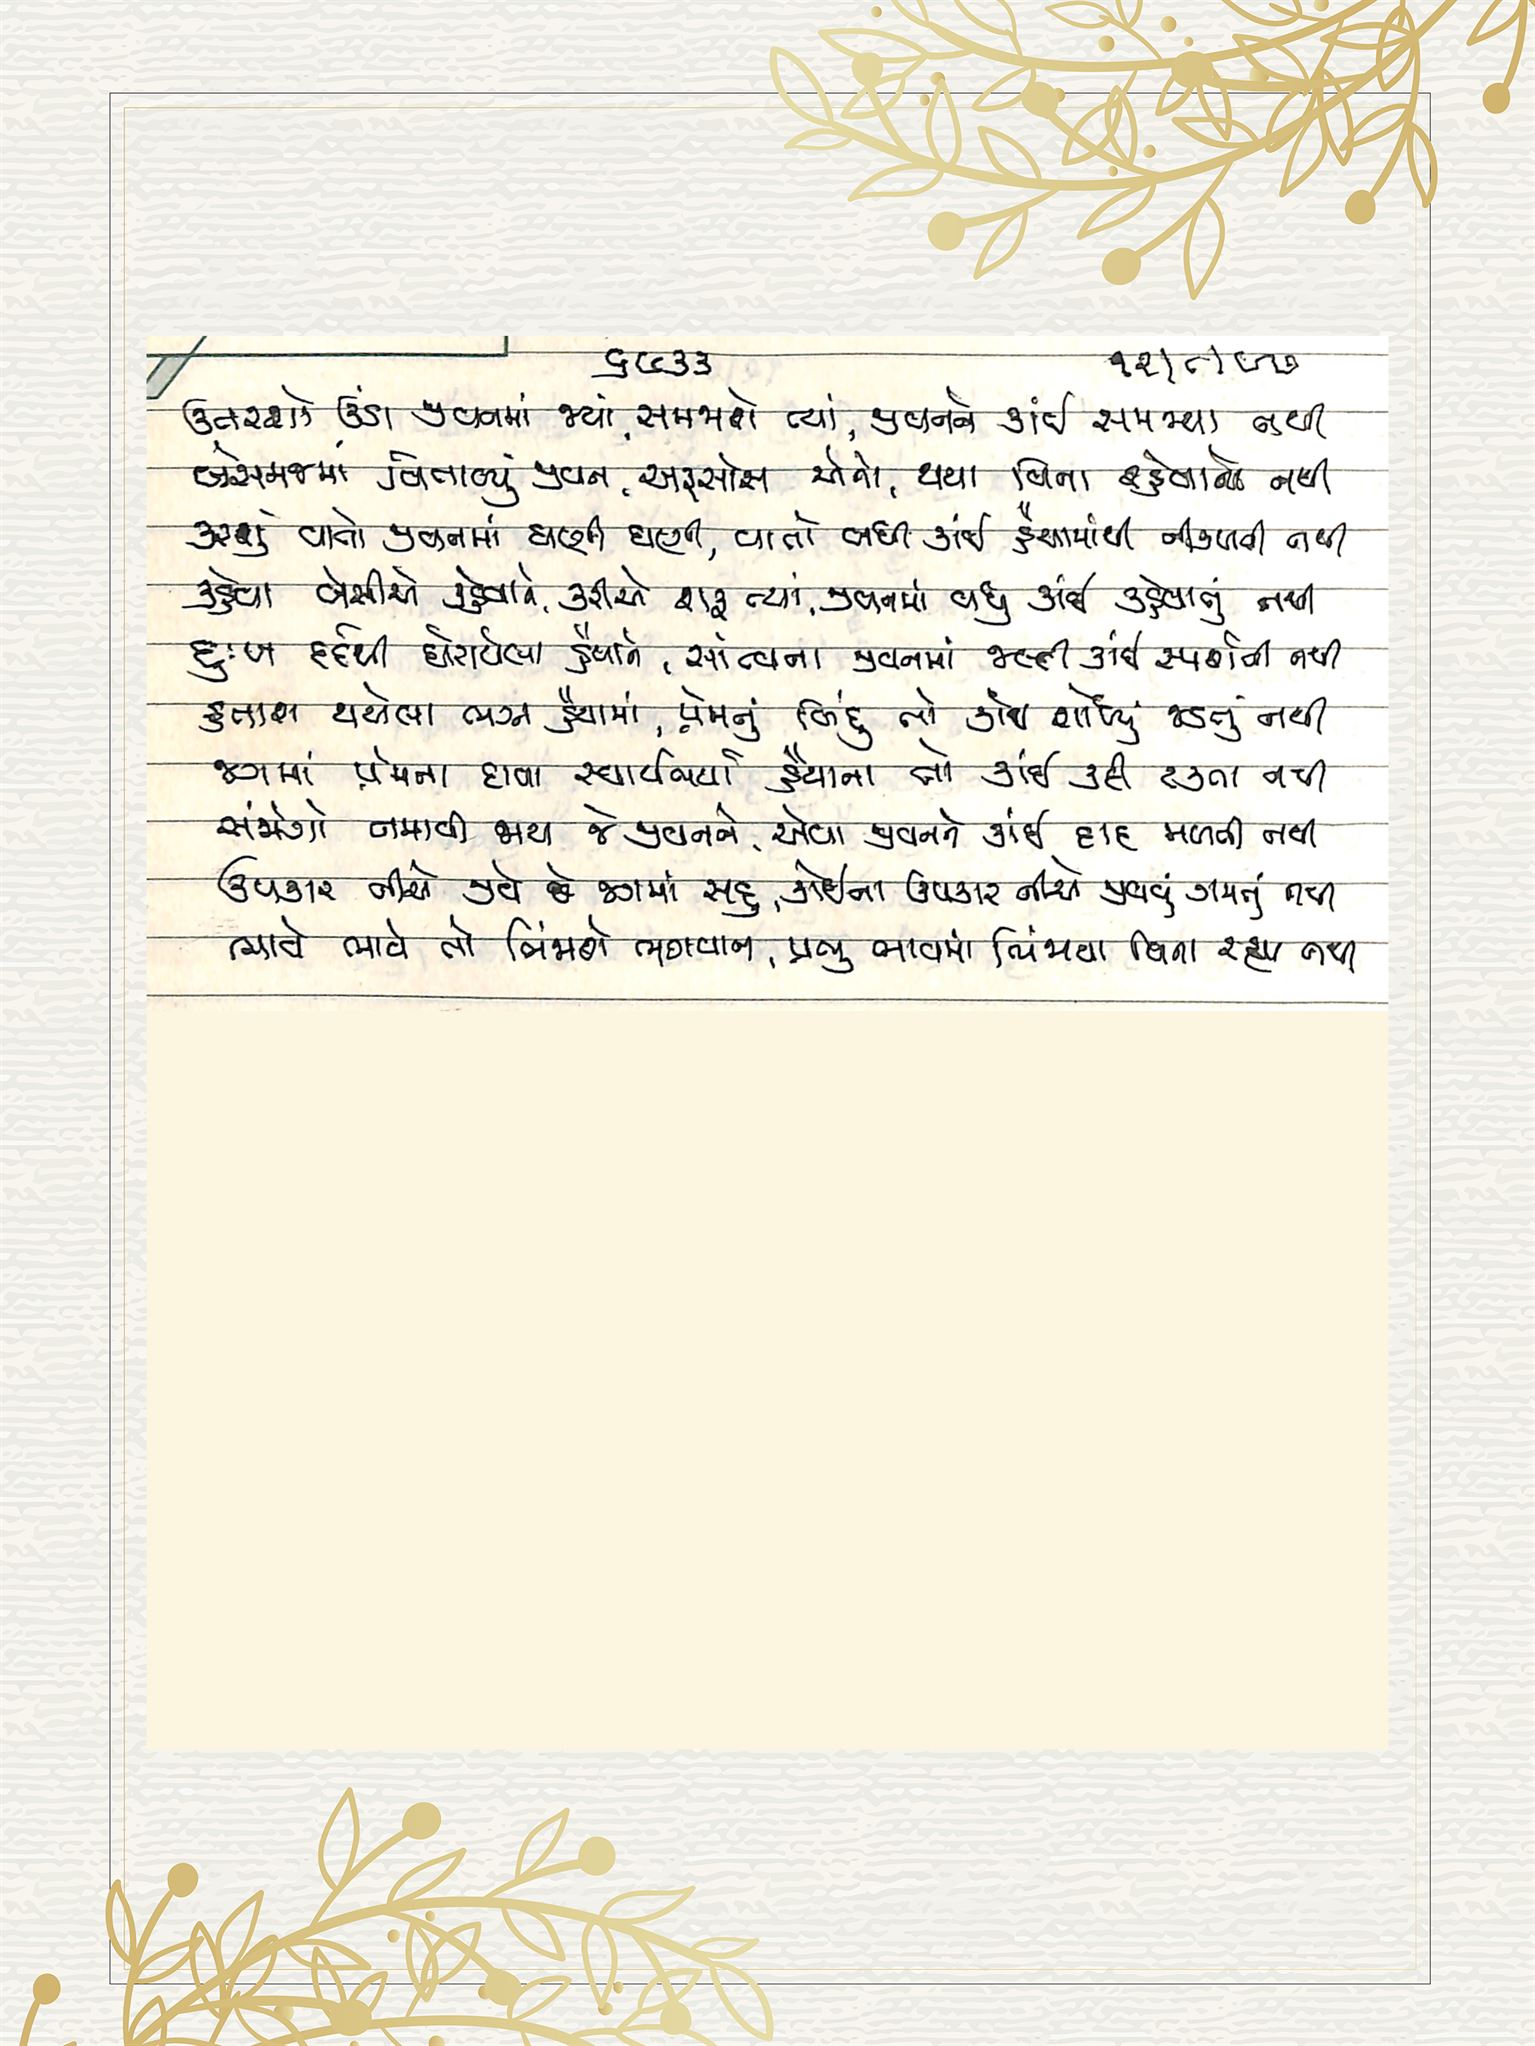 ૬૯૩૩
ઉતરશો ઉંડા જીવનમાં જ્યાં, સમજાશે ત્યાં, જીવનને કાંઈ સમજ્યા નથી
બેસમજમાં વિતાવ્યું જીવન, અફસોસ એનો, થયા વિના રહેવાનો નથી
કરશું વાતો જીવનમાં ઘણી ઘણી, વાતો બધી કાંઈ હૈયામાંથી નીકળતી નથી
કહેવા બેસીએ કહેવાને, કરીએ શરૂ ત્યાં, જીવનમાં વધુ કાંઈ કહેવાનું નથી
દુઃખ દર્દથી ઘેરાયેલા હૈયાને, સાંત્વના જીવનમાં જલ્દી કાંઈ સ્પર્શતી નથી
હતાશ થયેલા ભગ્ન હૈયામાં, પ્રેમનું બિંદુ તો કાંઈ શોધ્યું જડતું નથી
જગમાં પ્રેમના દાવા સ્વાર્થભર્યા હૈયાના તો કાંઈ કદી ટકતા નથી
સંજોગો નમાવી જાય જે જીવનને, એવા જીવનને કાંઈ દાદ મળતી નથી
ઉપકાર નીચે જીવે છે જગમાં સહુ, કોઈના ઉપકાર નીચે જીવવું ગમતું નથી
ભાવે ભાવે તો ભિંજાશે ભગવાન, પ્રભુ ભાવમાં ભિંજાયા વિના રહ્યા નથી